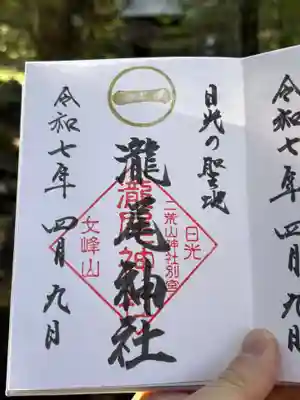 日光の聖地
一
瀧尾神社
日光
二荒山神社別宮
瀧尾神社
女峰山
令和七年 四月 九日
令和七
四月